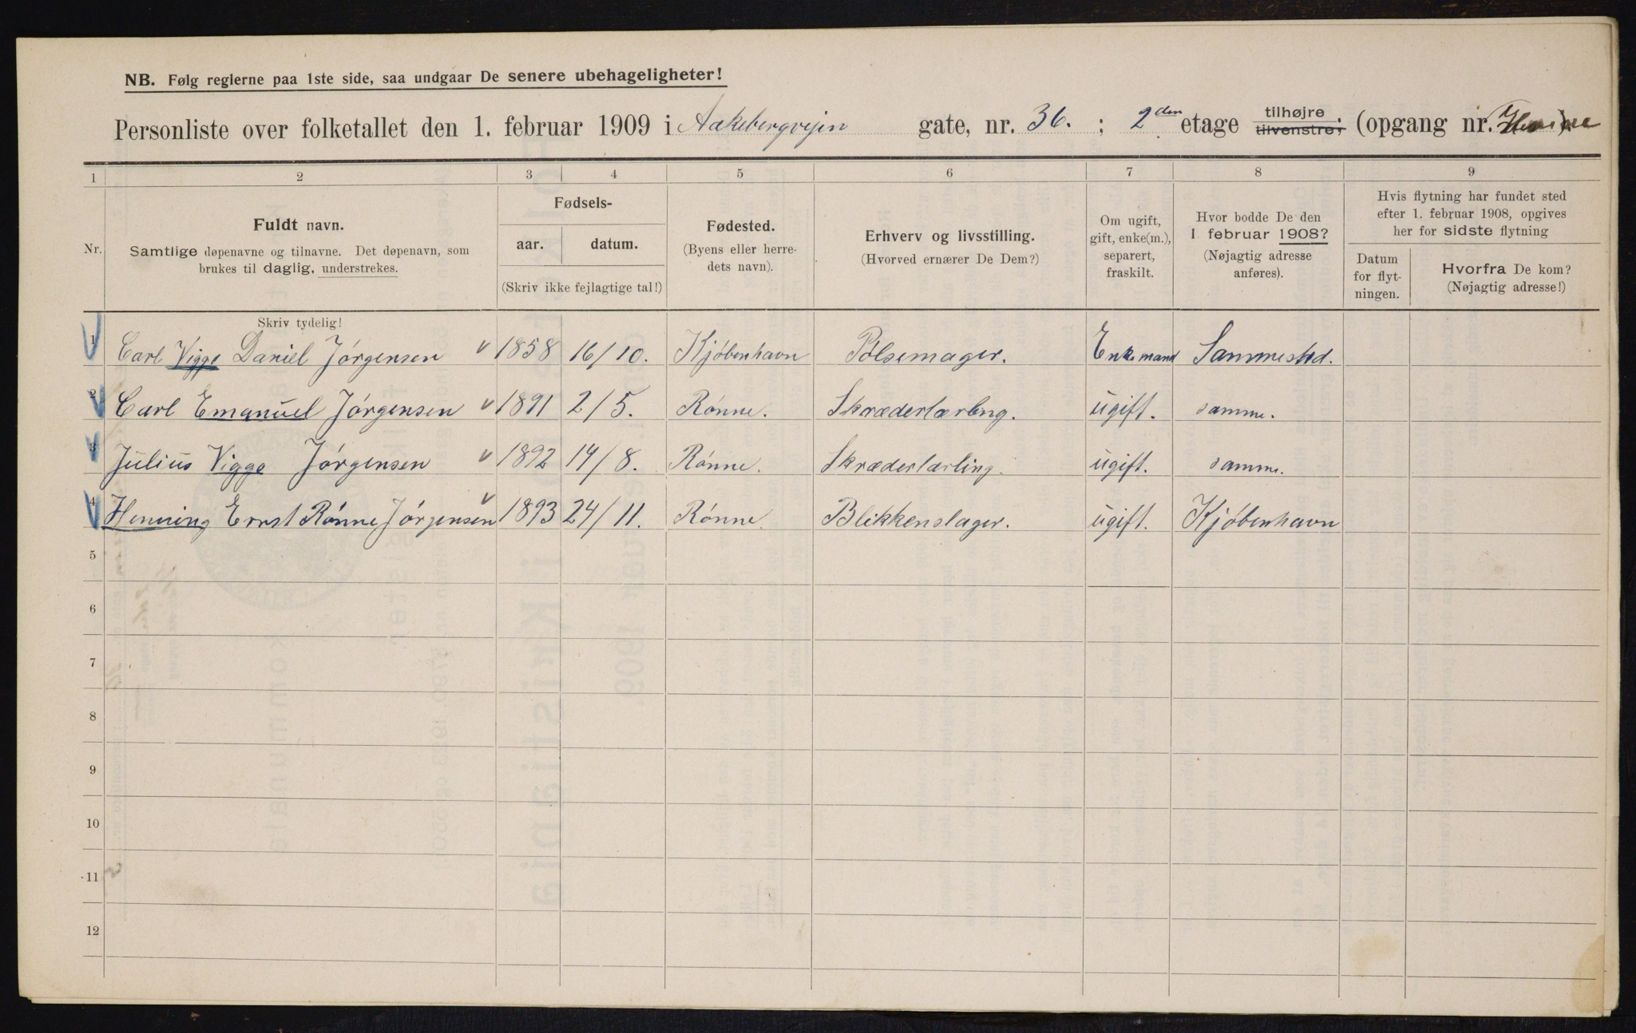 NB. Følg reglerne paa 1ste side, saa undgaar De senere ubehageligheter!
Personliste over folketallet den 1. februar 1909 i Aakebergvejen gate, nr. 36. ; 2den etage tilhøjre. tilvenstre; (opgang nr.
1 2 3 4 5 6 7 8 9
Nr.
Fuldt navn.
Samtlige døpenavne og tilnavne. Det døpenavn, som
brukes til daglig, understrekes.
Skriv tydelig!
Fødsels-
aar. datum.
(Skriv ikke fejlagtige tal!)
Fødested.
(Byens eller herre-
dets navn).
Erhverv og livsstilling.
(Hvorved ernærer De Dem?)
Om ugift,
gift, enke(m.),
separert,
fraskilt.
Hvor bodde De den
1. februar 1908?
(Nøjagtig adresse
anføres).
Hvis flytning har fundet sted
efter 1. februar 1908, opgives
her for sidste flytning
Datum
for flyt-
ningen.
Hvorfra De kom?
(Nøjagtig adresse!)
1 Carl Viggo Daniel Jórgensen 1858 16/10. Kjóbenhavn Pólsemager. Enkemand Sammested.
2 Carl Emanuel Jórgensen 1891 2/5. Rónne. Skræderlærling. ugift. samme.
3 Julius Viggo Jórgensen 1892 14/8. Rónne. Skræderlærling. ugift. samme.
4 Henning Ernst Rónne Jórgensen 1893 24/11. Rónne. Blikkenslager. ugift. Kjóbenhavn
5
6
7
8
9
10
11
12